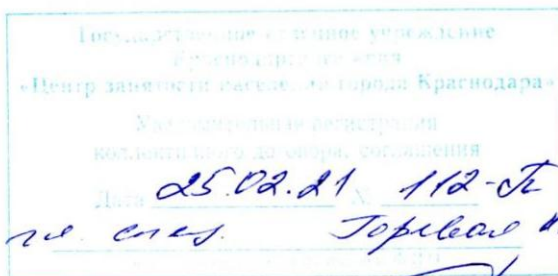 Государственное казенное учреждение
Краснодарского края
«Центр занятости населения города Краснодара»
Уведомительная регистрация
коллективного договора, соглашения
Дата 25.02.21 № 112-П
гл. спец. Горевая